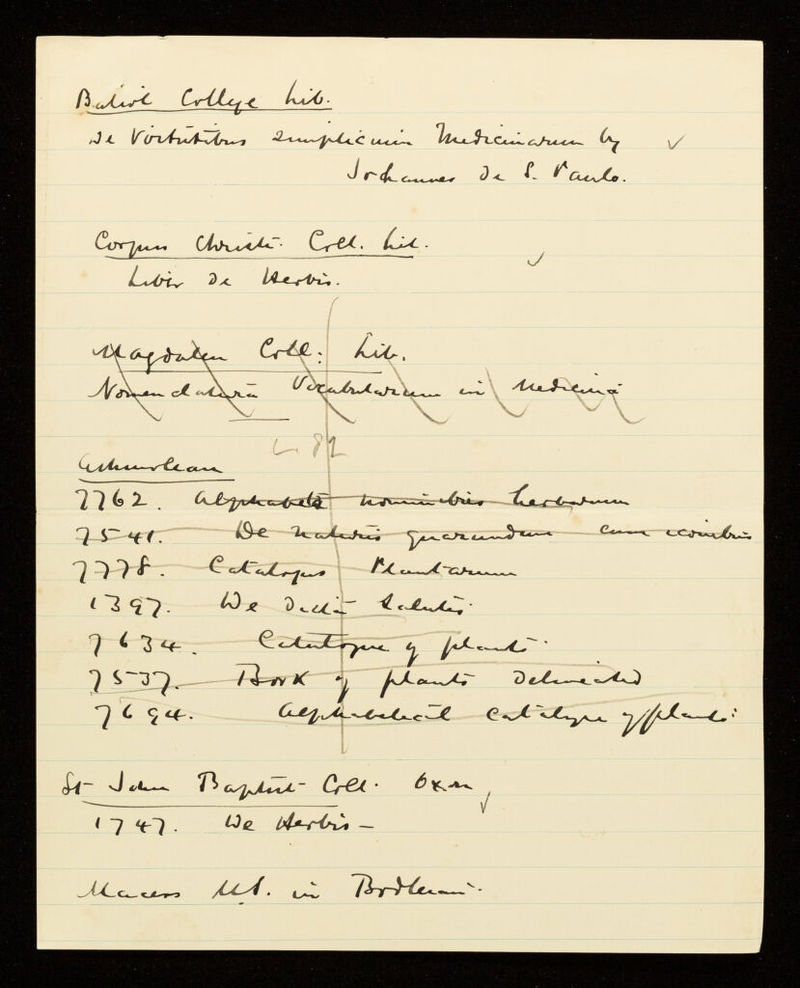 Baliol College Lib.
De Virtutibus Simplicium Medicinarum by
Johannes De S. Paulo.
Corpus Christi. Coll. Lib.
Liber De Herbis.
Magdalen Coll: Lib.
Nomenclatura Vocabularum in Medicina
Ashmolean
7762. Alphabeta nominibus herbarum
7541. De naturis quarundum cum iconibus
7778. Catalogus Plantarum
1397. De Dicta Salutis.
7634. Catalogue of plants
7537. Book of plants Delineated
7694. Alphabetical Catalogue of plants:
St John Baptist Coll. Oxon
1747. De Herbis —
Macers MS. in Bodleian.